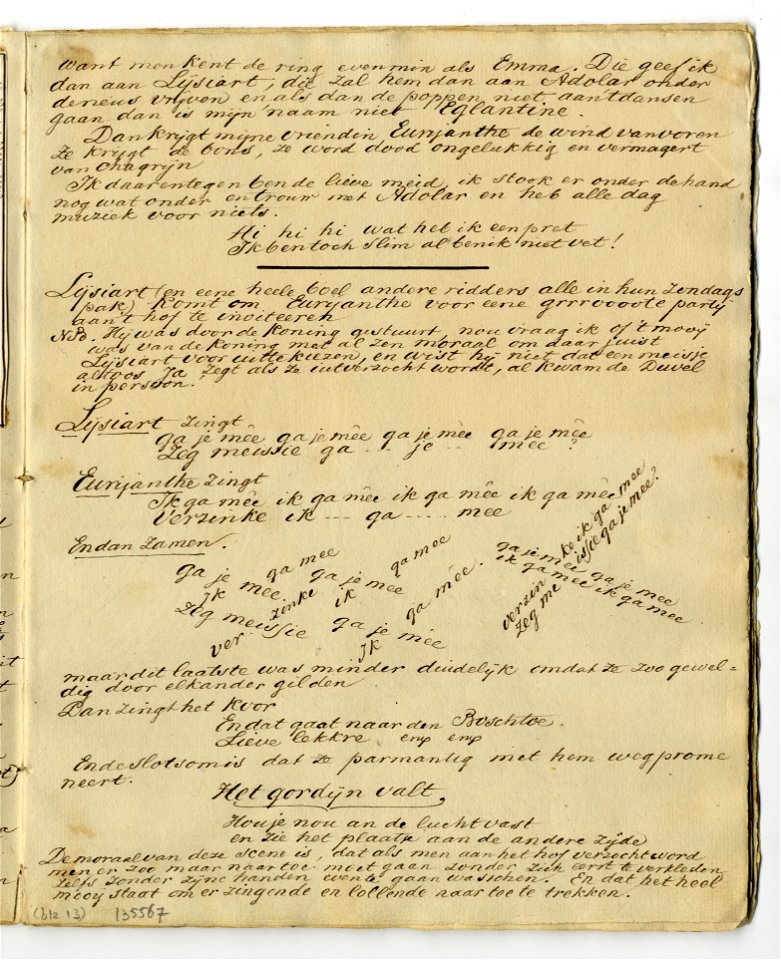 want men kent de ring evenmin als Emma. Die geef ik
dan aan Lijsiart, die zal hem dan aan Adolar onder
derneus vrijven en als dan de poppen niet aan't dansen
gaan dan is mijn naam niet Eglantine.
Dan krijgt mijne vriendin Eurijanthe de wind van voren
ze krijgt de bons, ze word dood ongelukkig en vermagert
van chagrijn
Ik daarentegen ben de lieve meid, ik stook er onder de hand
nog wat onder en trouw met Adolar en heb alle dag
muziek voor niets.
Hi hi hi wat heb ik een pret
Ik ben toch slim al ben ik niet vet!
Lijsiart (en eene heele boel andere ridders alle in hun zondags
pak) komt om Eurijanthe voor eene grrroooote partij
aan't hof te inviteeren
NB. Hij was door de koning gestuurt, nou vraag ik of 't mooij
was van de koning met al zen moraal om daar juist
Lijsiart voor uit te kiezen, en wist hij niet dat een meisje
altoos Ja zegt als ze uitverzocht wordt, al kwam de Duvel
in persoon.
Lijsiart zingt
ga je mêe ga je mêe ga je mêe ga je mêe
Zeg meissie ga .. je ... mêe?
Eurijanthe zingt
Ik ga mêe ik ga mêe ik ga mêe ik ga mêe
Verzinke ik .... ga ..... mee
En dan zamen.
ga je ga mee ga mee
Ik mee ga je mêe
Zeg meissie zinke ik ga mêe.
ver ga je mêe
Ik
ga je mêe ga je mee
ik ga mêe ik ga mee
verzin ke ik ga mee
Zeg me issie ga je mee?
maar dit laatste was minder duidelijk omdat ze zoo gewel=
dig door elkander gilden
Dan zingt het koor
En dat gaat naar den Boschtoe.
Lieve lekkre enz enz
En de slotsom is dat ze parmantig met hem wegprome
neert.
Het gordijn valt,
Hou je nou an de lucht vast
en zie het plaatje aan de andere zijde
De moraal van deze scene is, dat als men aan het hof verzocht word
men er zoo maar naar toe moet gaan zonder zich eerst te verkleden
zelfs zonder zijne handen eventj gaan wasschen. En dat het heel
mooij staat om er zingende en lollende naar toe te trekken.
(blz 13) 135567